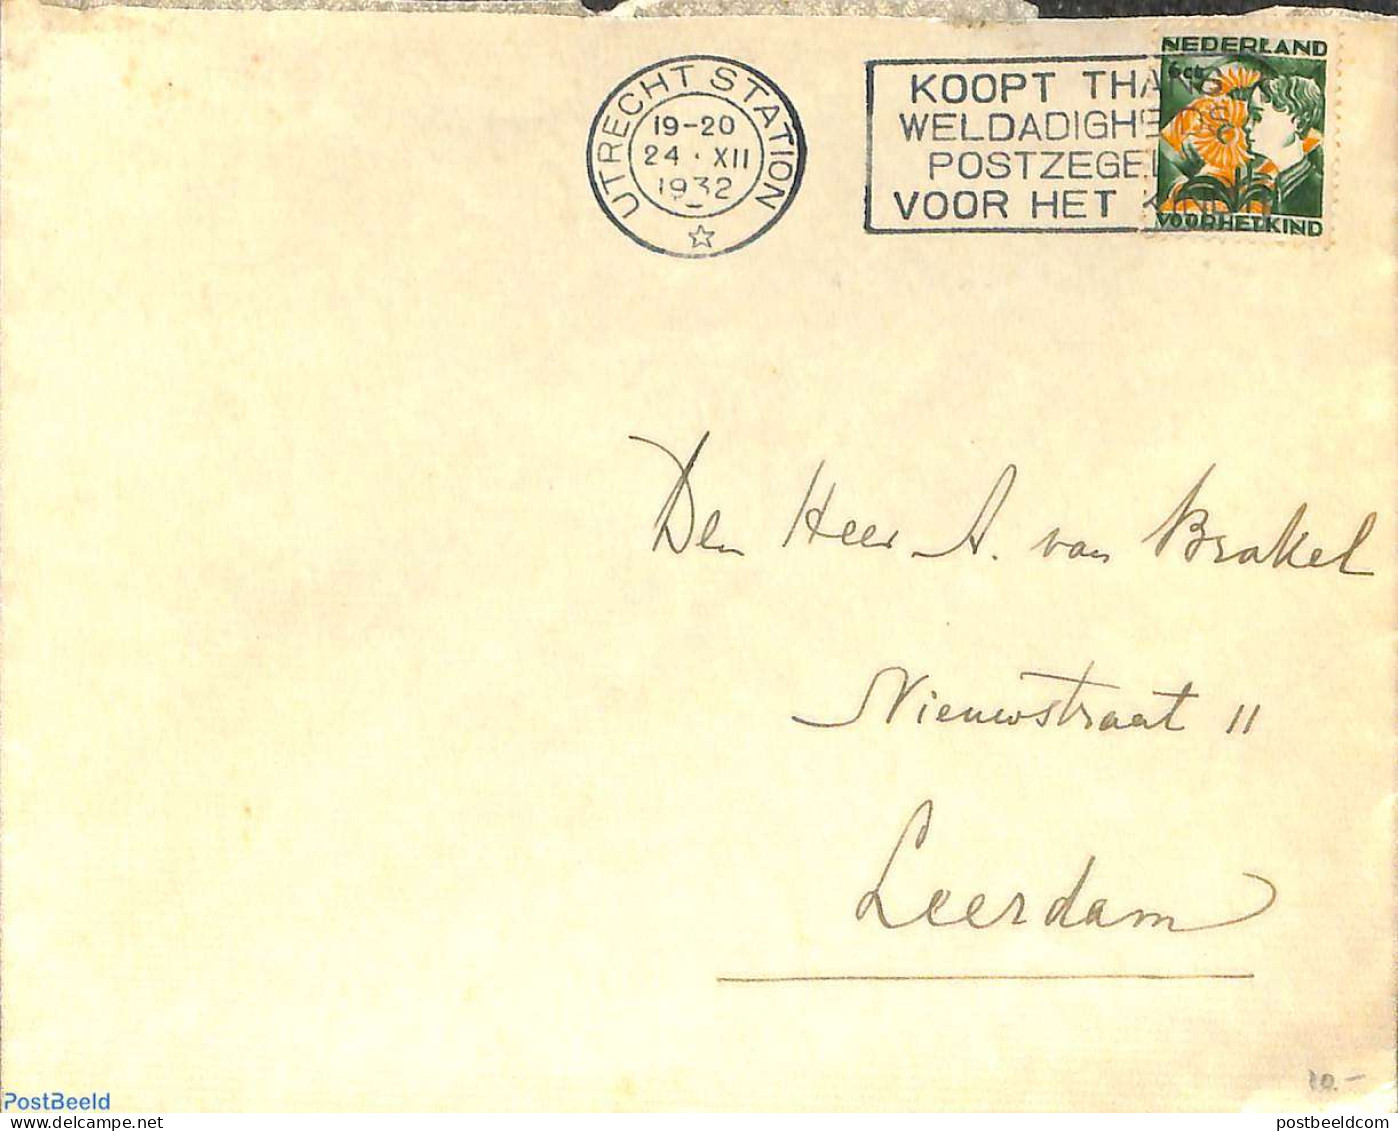 UTRECHT STATION
19-20
24 · XII
1932
KOOPT THANS
WELDADIGHEIDS
POSTZEGELS
VOOR HET KIND
NEDERLAND
VOOR HET KIND
Den Heer A. van Brakel
Nieuwstraat 11
Leerdam
10.-
PostBeeld
postbeeldcom